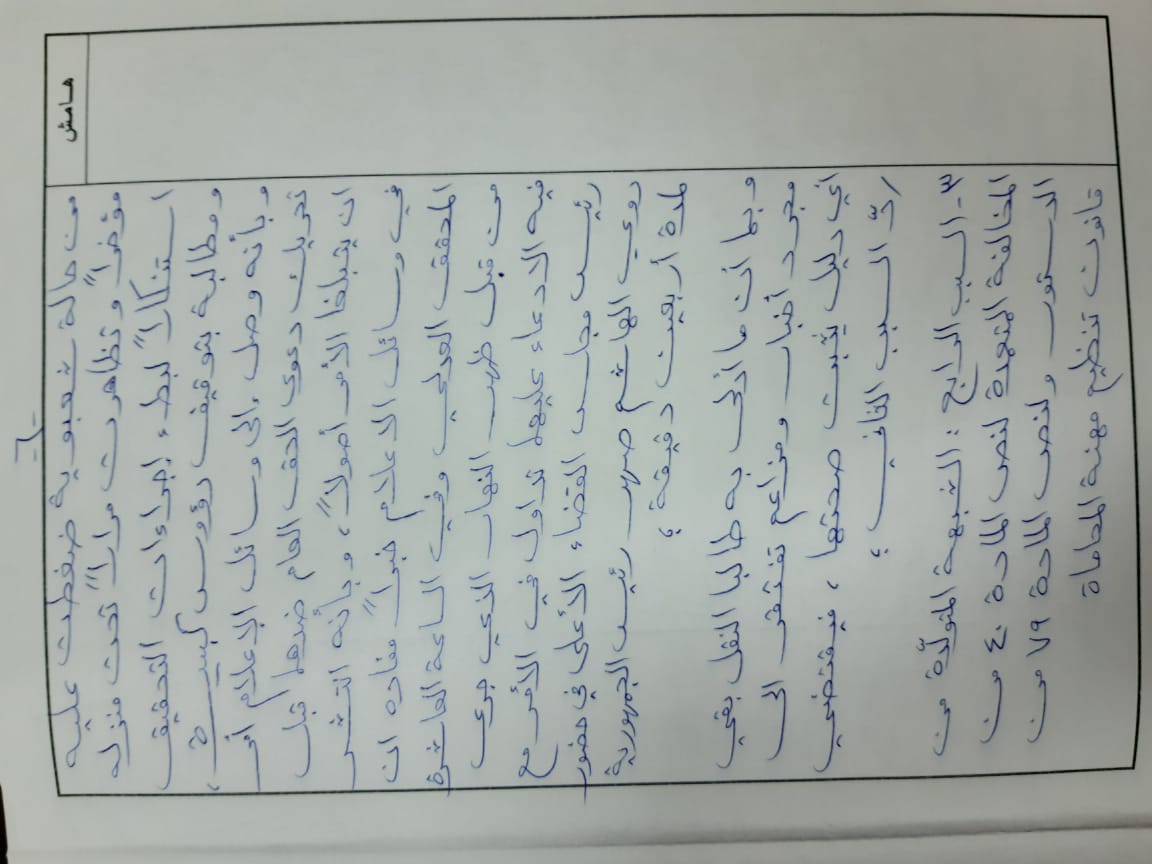 -٦-
هامش
من حالة شعبوية ضغطت عليه
موقفاً وتظاهرت مراراً تحت منزله
استنكاراً لبطء إجراءات التحقيق
ومطالبة بتوقيف رؤوس كبيرة،
وبأنه وصل إلى وسائل الإعلام أمر
تحريك دعوى الحق العام ضدهما قبل
ان يتبلغا الأمر أصولاً، وبأنه انتشر
في وسائل الاعلام خبراً مفاده ان
المحقق العدلي وفي الساعة العاشرة
من قبل ظهر النهار الذي جرى
فيه الادعاء عليهما تداول في الأمر مع
رئيس مجلس القضاء الأعلى في حضور
روي الهاشم صهر رئيس الجمهورية
لمدة أربعين دقيقة؛
وبما أن ما أدلى به طالبا النقل بقي
مجرد أخبار ومزاعم تفتقر الى
أي دليل يثبت صحتها، فيقتضي
ردّ السبب الثاني؛
٣- السبب الرابع: الشبهة المتولّدة من
المخالفة المتعمدة لنص المادة ٤٠ من
الدستور ولنص المادة ٧٩ من
قانون تنظيم مهنة المحاماة